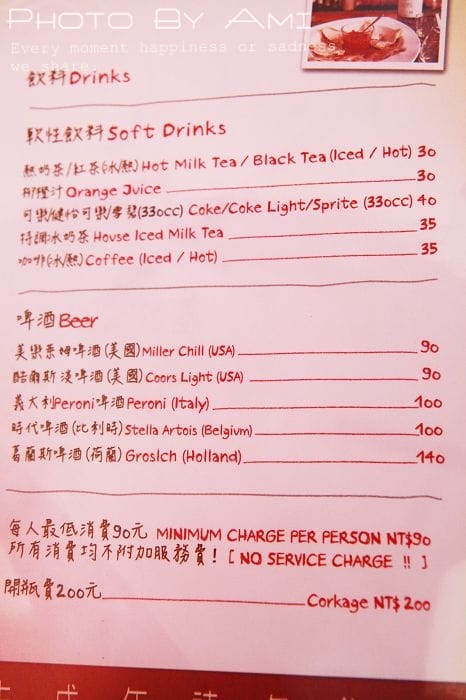 PHOTO BY AMI
Every moment happiness or sadness,
we share.
飲料Drinks
軟性飲料Soft Drinks
熱奶茶/紅茶(冰/熱)Hot Milk Tea / Black Tea (Iced / Hot) 30
柳橙汁Orange Juice 30
可樂/健怡可樂/雪碧(330cc) Coke/Coke Light/Sprite (330cc) 40
特調冰奶茶 House Iced Milk Tea 35
咖啡(冰/熱)Coffee (Iced / Hot) 35
啤酒Beer
美樂柔姆啤酒(美國)Miller Chill (USA) 90
酷爾斯淡啤酒(美國)Coors Light (USA) 90
義大利Peroni啤酒Peroni (Italy) 100
時代啤酒(比利時)Stella Artois (Belgium) 100
葛蘭斯啤酒(荷蘭)Grolsch (Holland) 140
每人最低消費90元 MINIMUM CHARGE PER PERSON NT$90
所有消費均不附加服務費! [ NO SERVICE CHARGE !! ]
開瓶費200元 Corkage NT$ 200